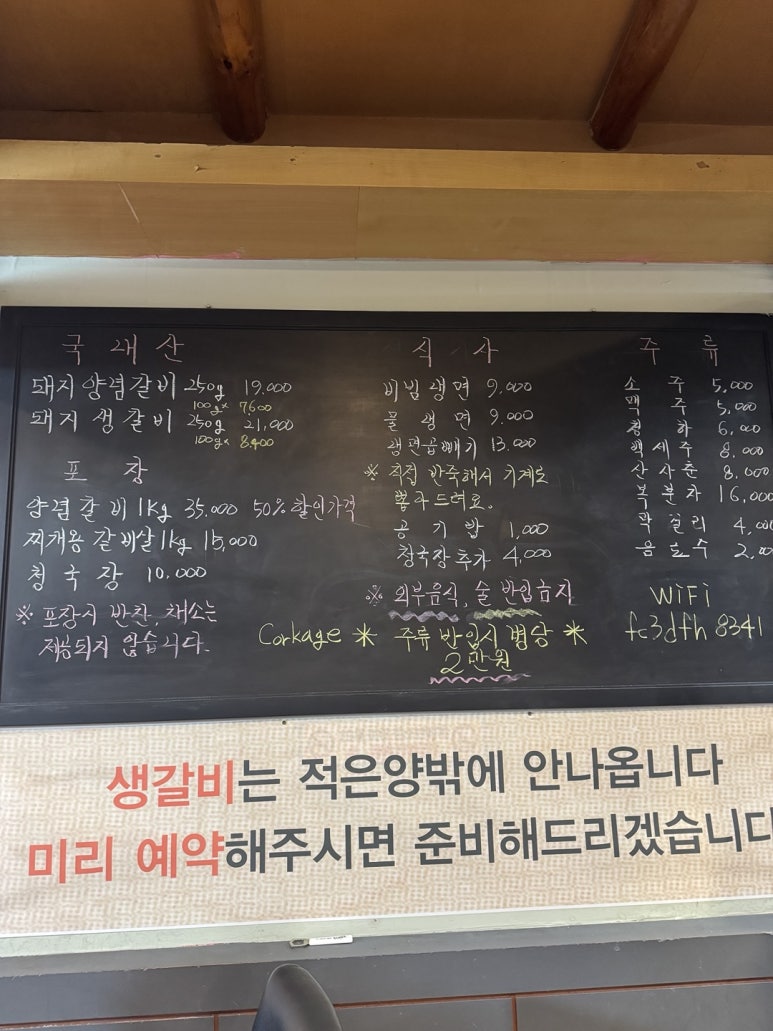 국내산
돼지양념갈비 250g 19,000
100g× 7600
돼지 생갈비 250g 21,000
100g× 8,400
포장
양념갈비 1kg 35,000 50% 할인가격
찌개용 갈비살 1kg 15,000
청국장 10,000
※ 포장시 반찬, 채소는
제공되지 않습니다.
식사
비빔냉면 9,000
물냉면 9,000
냉면곱빼기 13,000
※ 직접 반죽해서 기계로
뽑아드려요.
공기밥 1,000
청국장추가 4,000
※ 외부음식, 술 반입금지
Corkage * 주류 반입시 병당 *
2만원
주류
소주 5,000
맥주 5,000
청하 6,000
백세주 8,000
산사춘 8,000
복분자 16,000
막걸리 4,00
음료수 2,00
WiFi
fc3dfh8341
생갈비는 적은양밖에 안나옵니다
미리 예약해주시면 준비해드리겠습니다